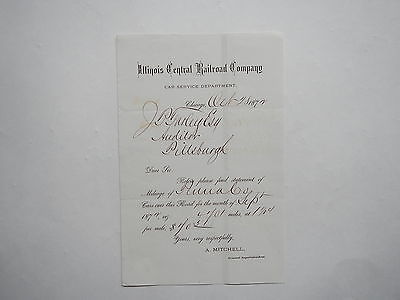 Illinois Central Railroad Company
CAR SERVICE DEPARTMENT.
Chicago, Oct 187
J. P. Farley Esq
Auditor
Pittsburgh
Dear Sir:
Below please find statement of
Mileage of Penna Co
Cars over this Road for the month of Sept
187 miles, at
per mile, $
Yours, very respectfully,
A. MITCHELL,